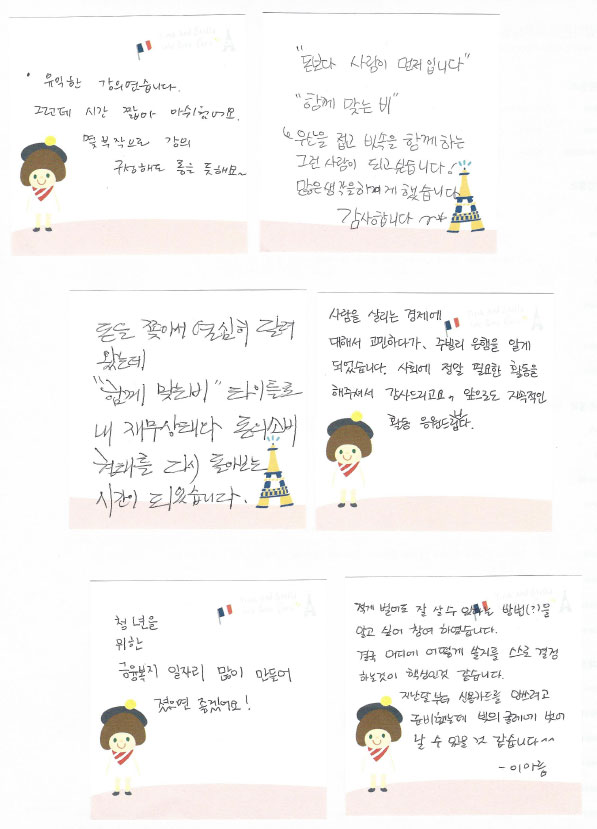 유익한 강의였습니다.
그런데 시간 짧아 아쉬웠어요.
몇 부작으로 강의
구성해도 좋을 듯해요~
"돈보다 사람이 먼저입니다"
"함께 맞는 비"
우산을 접고 빗속을 함께하는
그런 사람이 되고 싶습니다!
많은 생각을 하게 했습니다
감사합니다
돈을 쫓아서 열심히 달려
왔는데
"함께 맞는비" 타이틀로
내 재무상태다 돈의소비
형태를 다시 돌아보는
시간이 되었습니다.
사람을 살리는 경제에
대해서 고민하다가, 주빌리 은행을 알게
되었습니다. 사회에 정말 필요한 활동을
해주셔서 감사드리고요, 앞으로도 지속적인
활동 응원드립니다.
청년을
위한
금융복지 일자리 많이 만들어
졌으면 좋겠어요!
적게 벌어도 잘 살 수 있는 방법(?)을
알고 싶어 참여 하였습니다.
결국 어디에 어떻게 쓸지를 스스로 결정
하는것이 핵심인것 같습니다.
지난달부터 신용카드를 안쓰려고
준비했는데 빚의 굴레에서 벗어
날 수 있을 것 같습니다^^
- 이아름